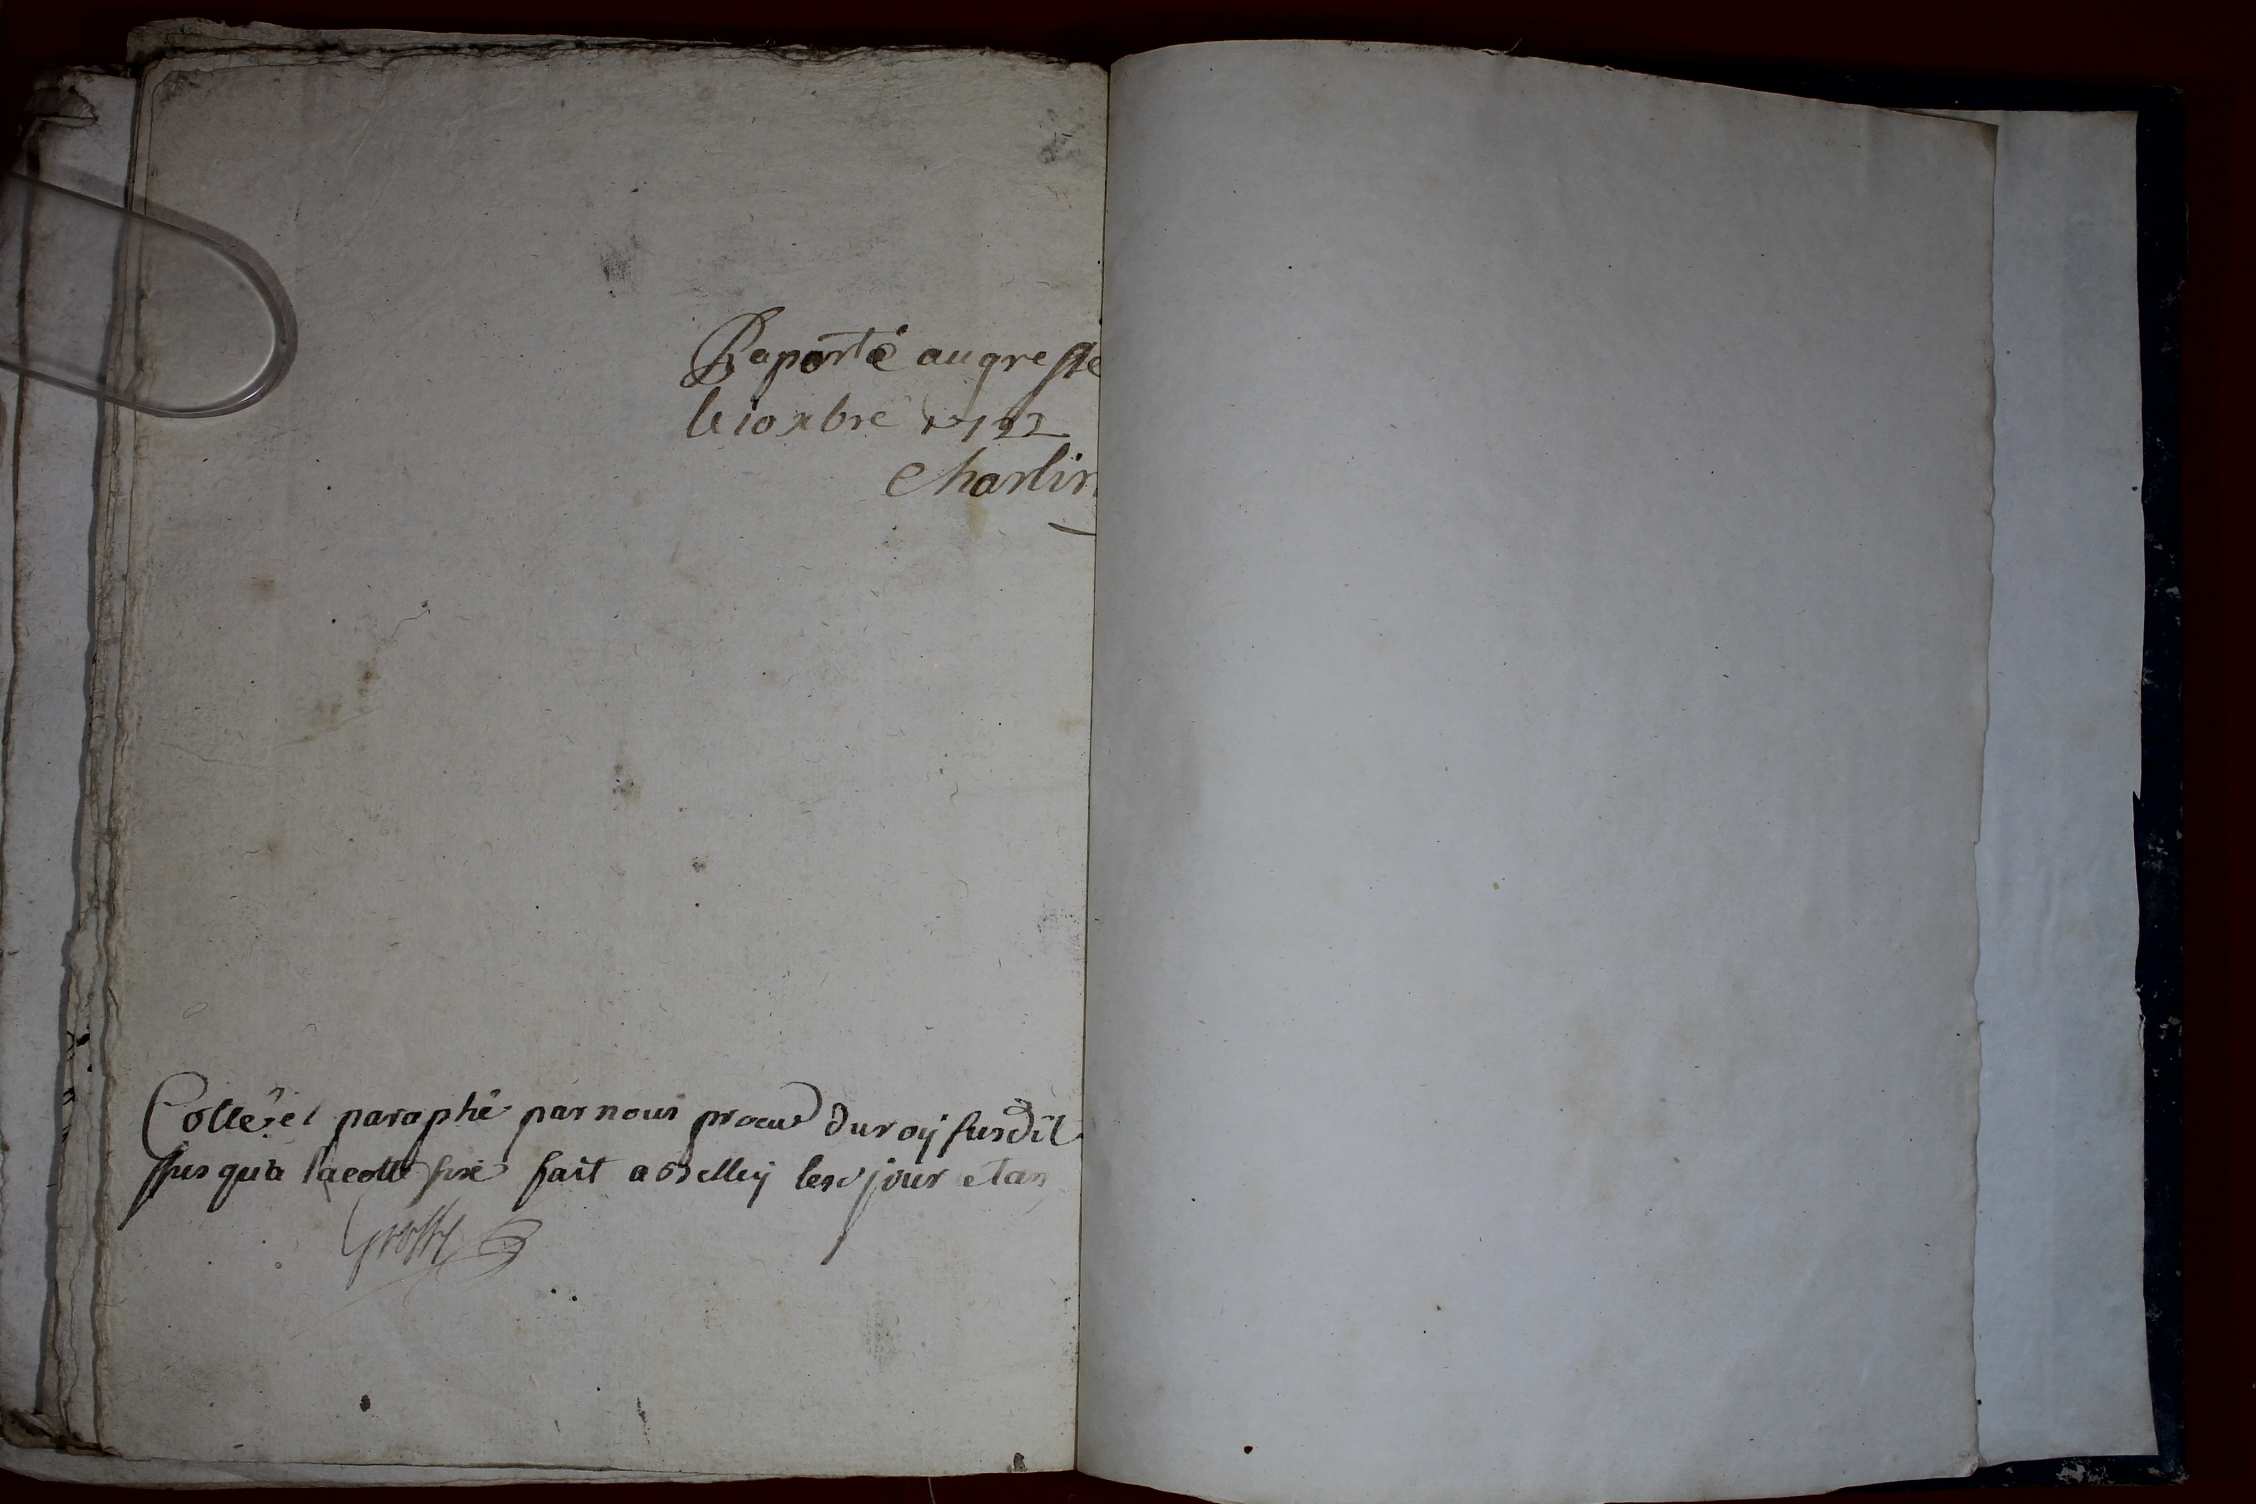 Raporté au greffe
le 10 xbre 1722
Charlin
Cotté et paraphé par nous procu^r du roy susdit
jusqu'a la cotte six fait a Belley les jour et an